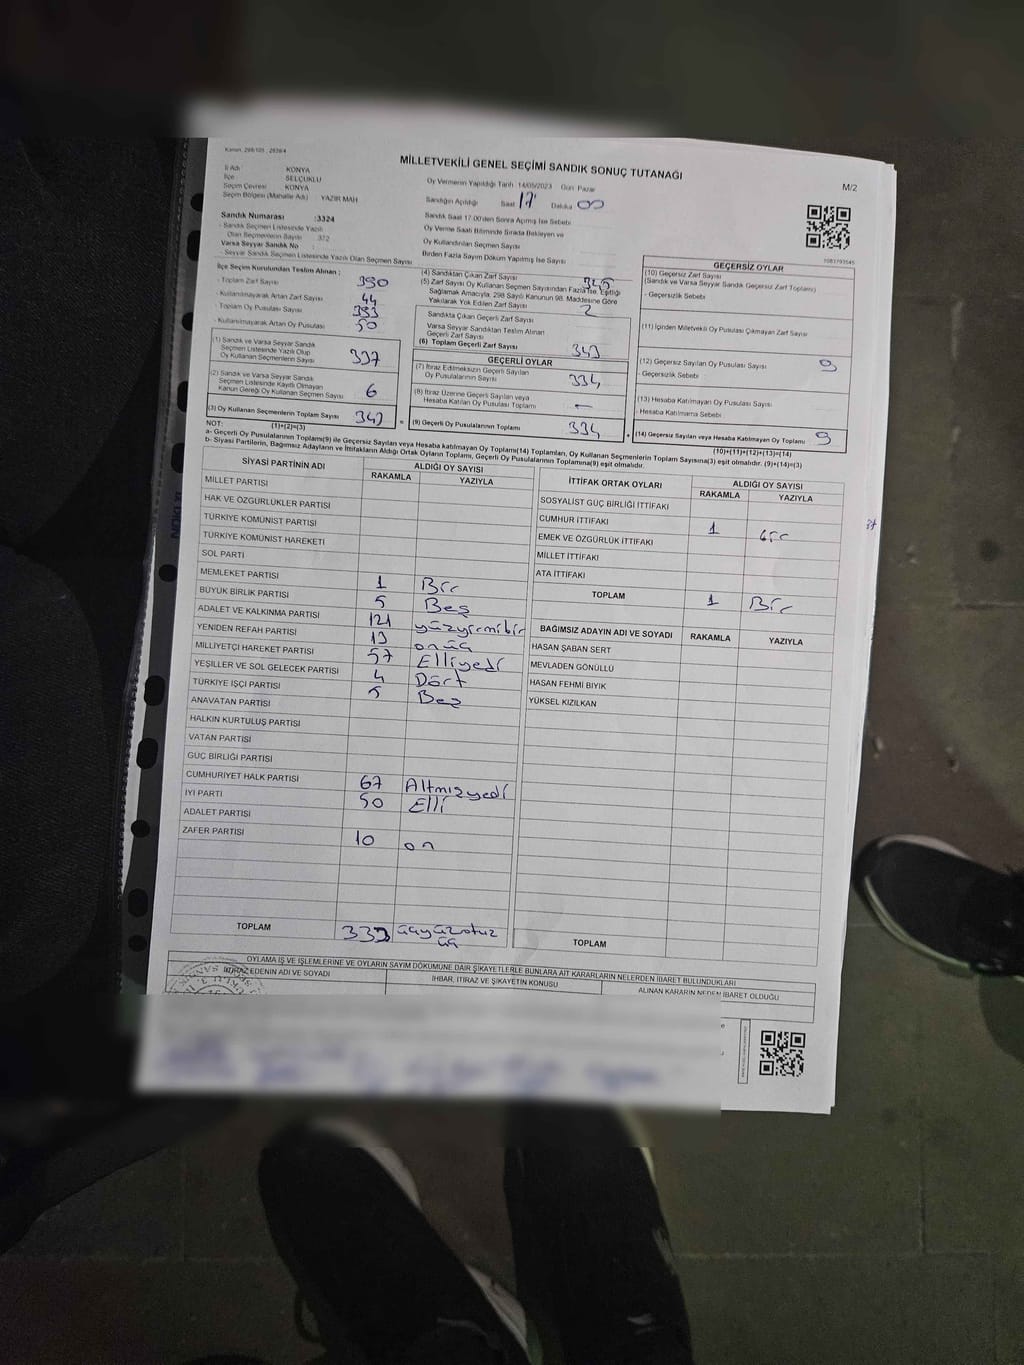 Kanun, 298/105 ; 2839/4
MİLLETVEKİLİ GENEL SEÇİMİ SANDIK SONUÇ TUTANAĞI
M/2
İl Adı KONYA
İlçe SELÇUKLU
Seçim Çevresi KONYA
Seçim Bölgesi (Mahalle Adı) YAZIR MAH
Sandık Numarası :3324
- Sandık Seçmen Listesinde Yazılı
Olan Seçmenlerin Sayısı 372
Varsa Seyyar Sandık No
- Seyyar Sandık Seçmen Listesinde Yazılı Olan Seçmen Sayısı
Oy Vermenin Yapıldığı Tarih 14/05/2023 Gün Pazar
Sandığın Açıldığı Saat 17 Dakika 00
Sandık Saat 17:00'den Sonra Açılmış İse Sebebi
Oy Verme Saati Bitiminde Sırada Bekleyen ve
Oy Kullandırılan Seçmen Sayısı
Birden Fazla Sayım Döküm Yapılmış İse Sayısı
İlçe Seçim Kurulundan Teslim Alınan ;
- Toplam Zarf Sayısı 390
- Kullanılmayarak Artan Zarf Sayısı 44
- Toplam Oy Pusulası Sayısı 393
- Kullanılmayarak Artan Oy Pusulası 50
(1) Sandık ve Varsa Seyyar Sandık
Seçmen Listesinde Yazılı Olup
Oy Kullanan Seçmenlerin Sayısı 337
(2) Sandık ve Varsa Seyyar Sandık
Seçmen Listesinde Kayıtlı Olmayan
Kanun Gereği Oy Kullanan Seçmen Sayısı 6
(3) Oy Kullanan Seçmenlerin Toplam Sayısı 343
(1)+(2)=(3)
(4) Sandıktan Çıkan Zarf Sayısı 345
(5) Zarf Sayısı Oy Kullanan Seçmen Sayısından Fazla İse, Eşitliği
Sağlamak Amacıyla, 298 Sayılı Kanunun 98. Maddesine Göre
Yakılarak Yok Edilen Zarf Sayısı 2
Sandıkta Çıkan Geçerli Zarf Sayısı
Varsa Seyyar Sandıktan Teslim Alınan
Geçerli Zarf Sayısı
(6) Toplam Geçerli Zarf Sayısı 343
GEÇERLİ OYLAR
(7) İtiraz Edilmeksizin Geçerli Sayılan
Oy Pusulalarının Sayısı 334
(8) İtiraz Üzerine Geçerli Sayılan veya
Hesaba Katılan Oy Pusulası Toplamı -
(9) Geçerli Oy Pusulalarının Toplamı 334
7083793545
GEÇERSİZ OYLAR
(10) Geçersiz Zarf Sayısı
(Sandık ve Varsa Seyyar Sandık Geçersiz Zarf Toplamı)
- Geçersizlik Sebebi
(11) İçinden Milletvekili Oy Pusulası Çıkmayan Zarf Sayısı
(12) Geçersiz Sayılan Oy Pusulası Sayısı 9
- Geçersizlik Sebebi :
(13) Hesaba Katılmayan Oy Pusulası Sayısı
- Hesaba Katılmama Sebebi :
(14) Geçersiz Sayılan veya Hesaba Katılmayan Oy Toplamı 9
(10)+(11)+(12)+(13)=(14)
NOT:
a- Geçerli Oy Pusulalarının Toplamı(9) ile Geçersiz Sayılan veya Hesaba katılmayan Oy Toplamı(14) Toplamları, Oy Kullanan Seçmenlerin Toplam Sayısına(3) eşit olmalıdır. (9)+(14)=(3)
b- Siyasi Partilerin, Bağımsız Adayların ve İttifakların Aldığı Ortak Oyların Toplamı, Geçerli Oy Pusulalarının Toplamına(9) eşit olmalıdır.
SİYASİ PARTİNİN ADI ALDIĞI OY SAYISI
RAKAMLA YAZIYLA
MİLLET PARTİSİ
HAK VE ÖZGÜRLÜKLER PARTİSİ
TÜRKİYE KOMÜNİST PARTİSİ
TÜRKİYE KOMÜNİST HAREKETİ
SOL PARTİ
MEMLEKET PARTİSİ 1 Bir
BÜYÜK BİRLİK PARTİSİ 5 Beş
ADALET VE KALKINMA PARTİSİ 121 yüzyirmibir
YENİDEN REFAH PARTİSİ 13 onüç
MİLLİYETÇİ HAREKET PARTİSİ 57 Elliyedi
YEŞİLLER VE SOL GELECEK PARTİSİ 4 Dört
TÜRKİYE İŞÇİ PARTİSİ 5 Beş
ANAVATAN PARTİSİ
HALKIN KURTULUŞ PARTİSİ
VATAN PARTİSİ
GÜÇ BİRLİĞİ PARTİSİ
CUMHURİYET HALK PARTİSİ 67 Altmışyedi
İYİ PARTİ 50 Elli
ADALET PARTİSİ
ZAFER PARTİSİ 10 on
TOPLAM 333 üçyüzotuz
üç
İTTİFAK ORTAK OYLARI ALDIĞI OY SAYISI
RAKAMLA YAZIYLA
SOSYALİST GÜÇ BİRLİĞİ İTTİFAKI
CUMHUR İTTİFAKI 1 bir
EMEK VE ÖZGÜRLÜK İTTİFAKI
MİLLET İTTİFAKI
ATA İTTİFAKI
TOPLAM 1 Bir
BAĞIMSIZ ADAYIN ADI VE SOYADI RAKAMLA YAZIYLA
HASAN ŞABAN SERT
MEVLADEN GÖNÜLLÜ
HASAN FEHMİ BIYIK
YÜKSEL KIZILKAN
TOPLAM
OYLAMA İŞ VE İŞLEMLERİNE VE OYLARIN SAYIM DÖKÜMÜNE DAİR ŞİKAYETLERLE BUNLARA AİT KARARLARIN NELERDEN İBARET BULUNDUKLARI
İTİRAZ EDENİN ADI VE SOYADI
İHBAR, İTİRAZ VE ŞİKAYETİN KONUSU
ALINAN KARARIN NEDEN İBARET OLDUĞU